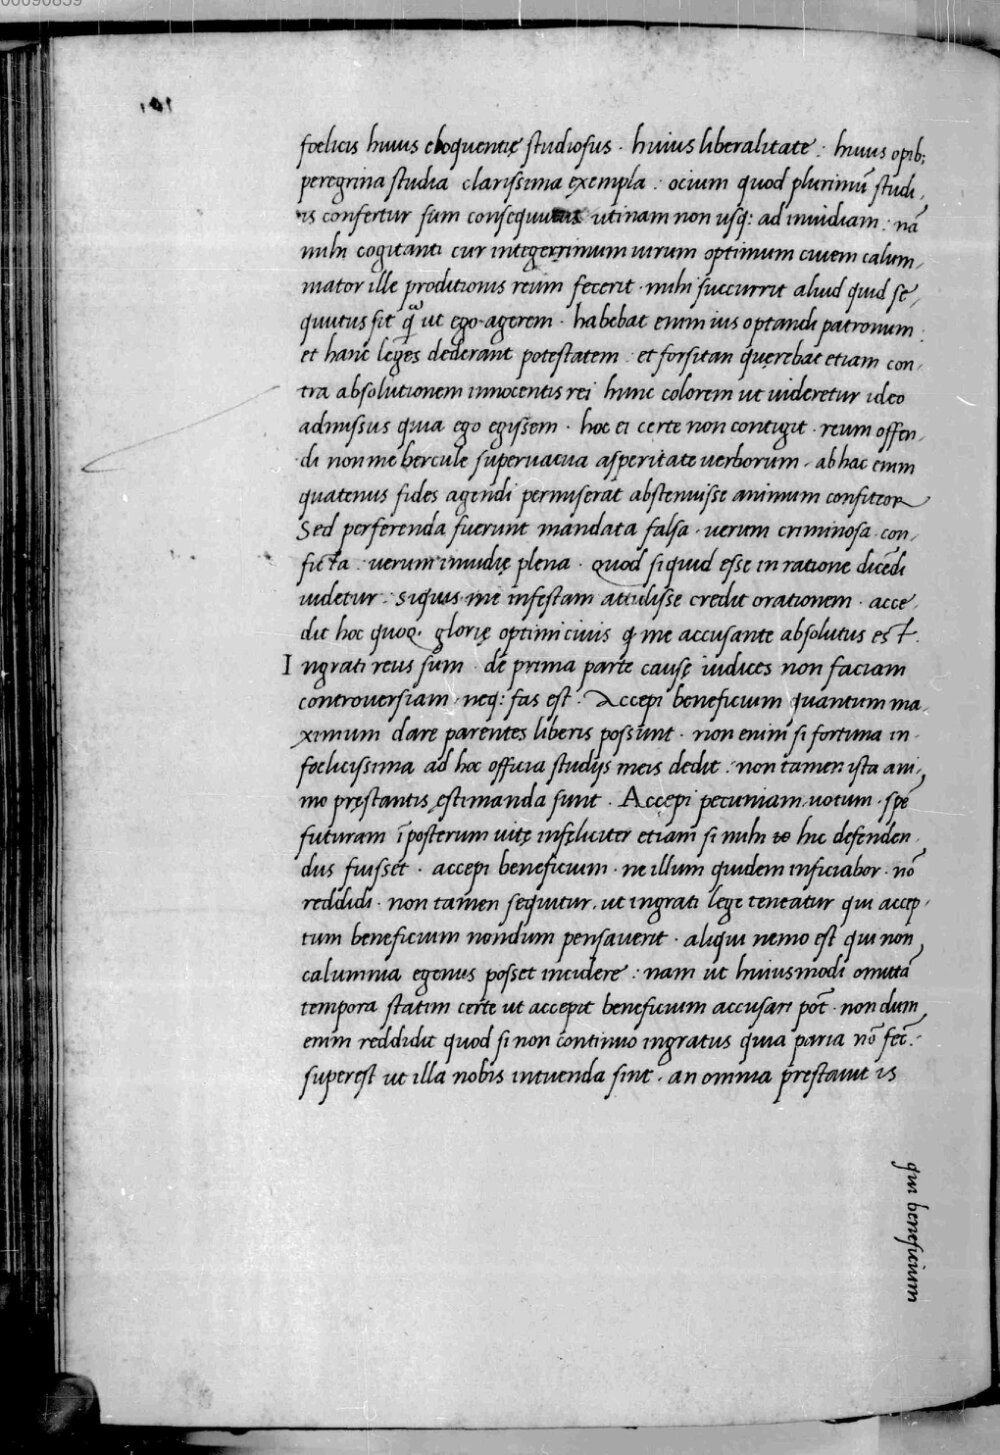 00090859
foelicis huius eloquentię studiosus · huius liberalitate : huius opib;
peregrina studia clarissima exempla : ocium quod plurimū studi,
is confertur sum consequutus utinam non usq: ad inuidiam : nā
mihi cogitanti cur integerrimum uirum optimum ciuem calum,
niator ille proditionis reum fecerit · mihi succurrit aliud quid se,
quutus sit q̃ ut ego agerem · habebat enim ius optandi patronum
et hanc leges dederant potestatem : et forsitan quęrebat etiam con,
tra absolutionem innocentis rei hunc colorem ut uideretur ideo
admissus quia ego egissem · hoc ei certe non contigit · reum offen,
di non me hercule superuacua asperitate uerborum , ab hac enim
quatenus fides agendi permiserat abstenuisse animum confiteor
Sed perferenda fuerunt mandata falsa · uerum criminosa con,
ficta : uerum inuidię plena · quod siquid esse in ratione dicēdi
uidetur : siquis me infestam attulisse credit orationem · acce,
dit hoc quoq. glorię optimi ciuis q̃ me accusante absolutus est.
Ingrati reus sum · de prima parte causę iudices non faciam
controuersiam , neq: fas est : Accepi beneficium quantum ma,
ximum dare parentes liberis possunt · non enim si fortuna in
foelicissima ad hoc officia studijs meis dedit : non tamen ista ani,
mo pręstantis ęstimanda sunt · Accepi pecuniam uotum · spē
futuram ī posterum uitę infęliciter etiam si mihi hic defenden,
dus fuisset · accepi beneficium · ne illum quidem inficiabor · nō
reddidi · non tamen sequitur , ut ingrati lege teneatur qui accep,
tum beneficium nondum pensauerit · aliqui nemo est qui non
calumnia egenus posset incidere : nam ut huiusmodi omittā
tempora statim certe ut accepit beneficium accusari pōt · non dum
enim reddidit quod si non continuo ingratus quia paria nō fec̄.
superest ut illa nobis intuenda sint · an omnia pręstauit is
qui beneficium